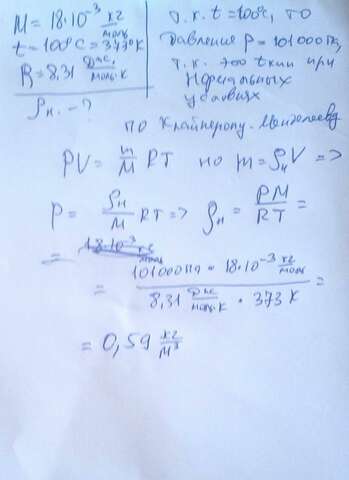 M = 18·10⁻³ кг/моль
t = 100°C = 373°K
R = 8,31 Дж/моль·К
ρн. - ?
т.к. t = 100°C, то
давление P = 101000 Па,
т.к. это t кип при
Нормальных
условиях
по Клайперону. Менделееву
PV = m/M RT но m = ρнV =>
P = ρн/M RT => ρн = PM/RT =
= 18·10⁻³ кг/моль
= 101000 Па · 18·10⁻³ кг/моль / 8,31 Дж/моль·К · 373 К =
= 0,59 кг/м³